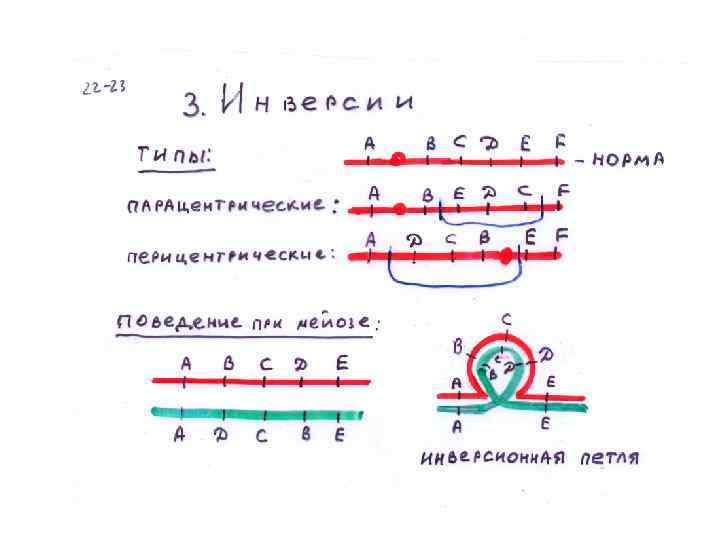 22-23
3. Инверсии
Типы:
A B C D E F - НОРМА
ПАРАцентрические: A B E D C F
перицентрические: A D C B E F
Поведение при мейозе:
A B C D E
A D C B E
C
B C D
B D
A E
A E
инверсионная петля